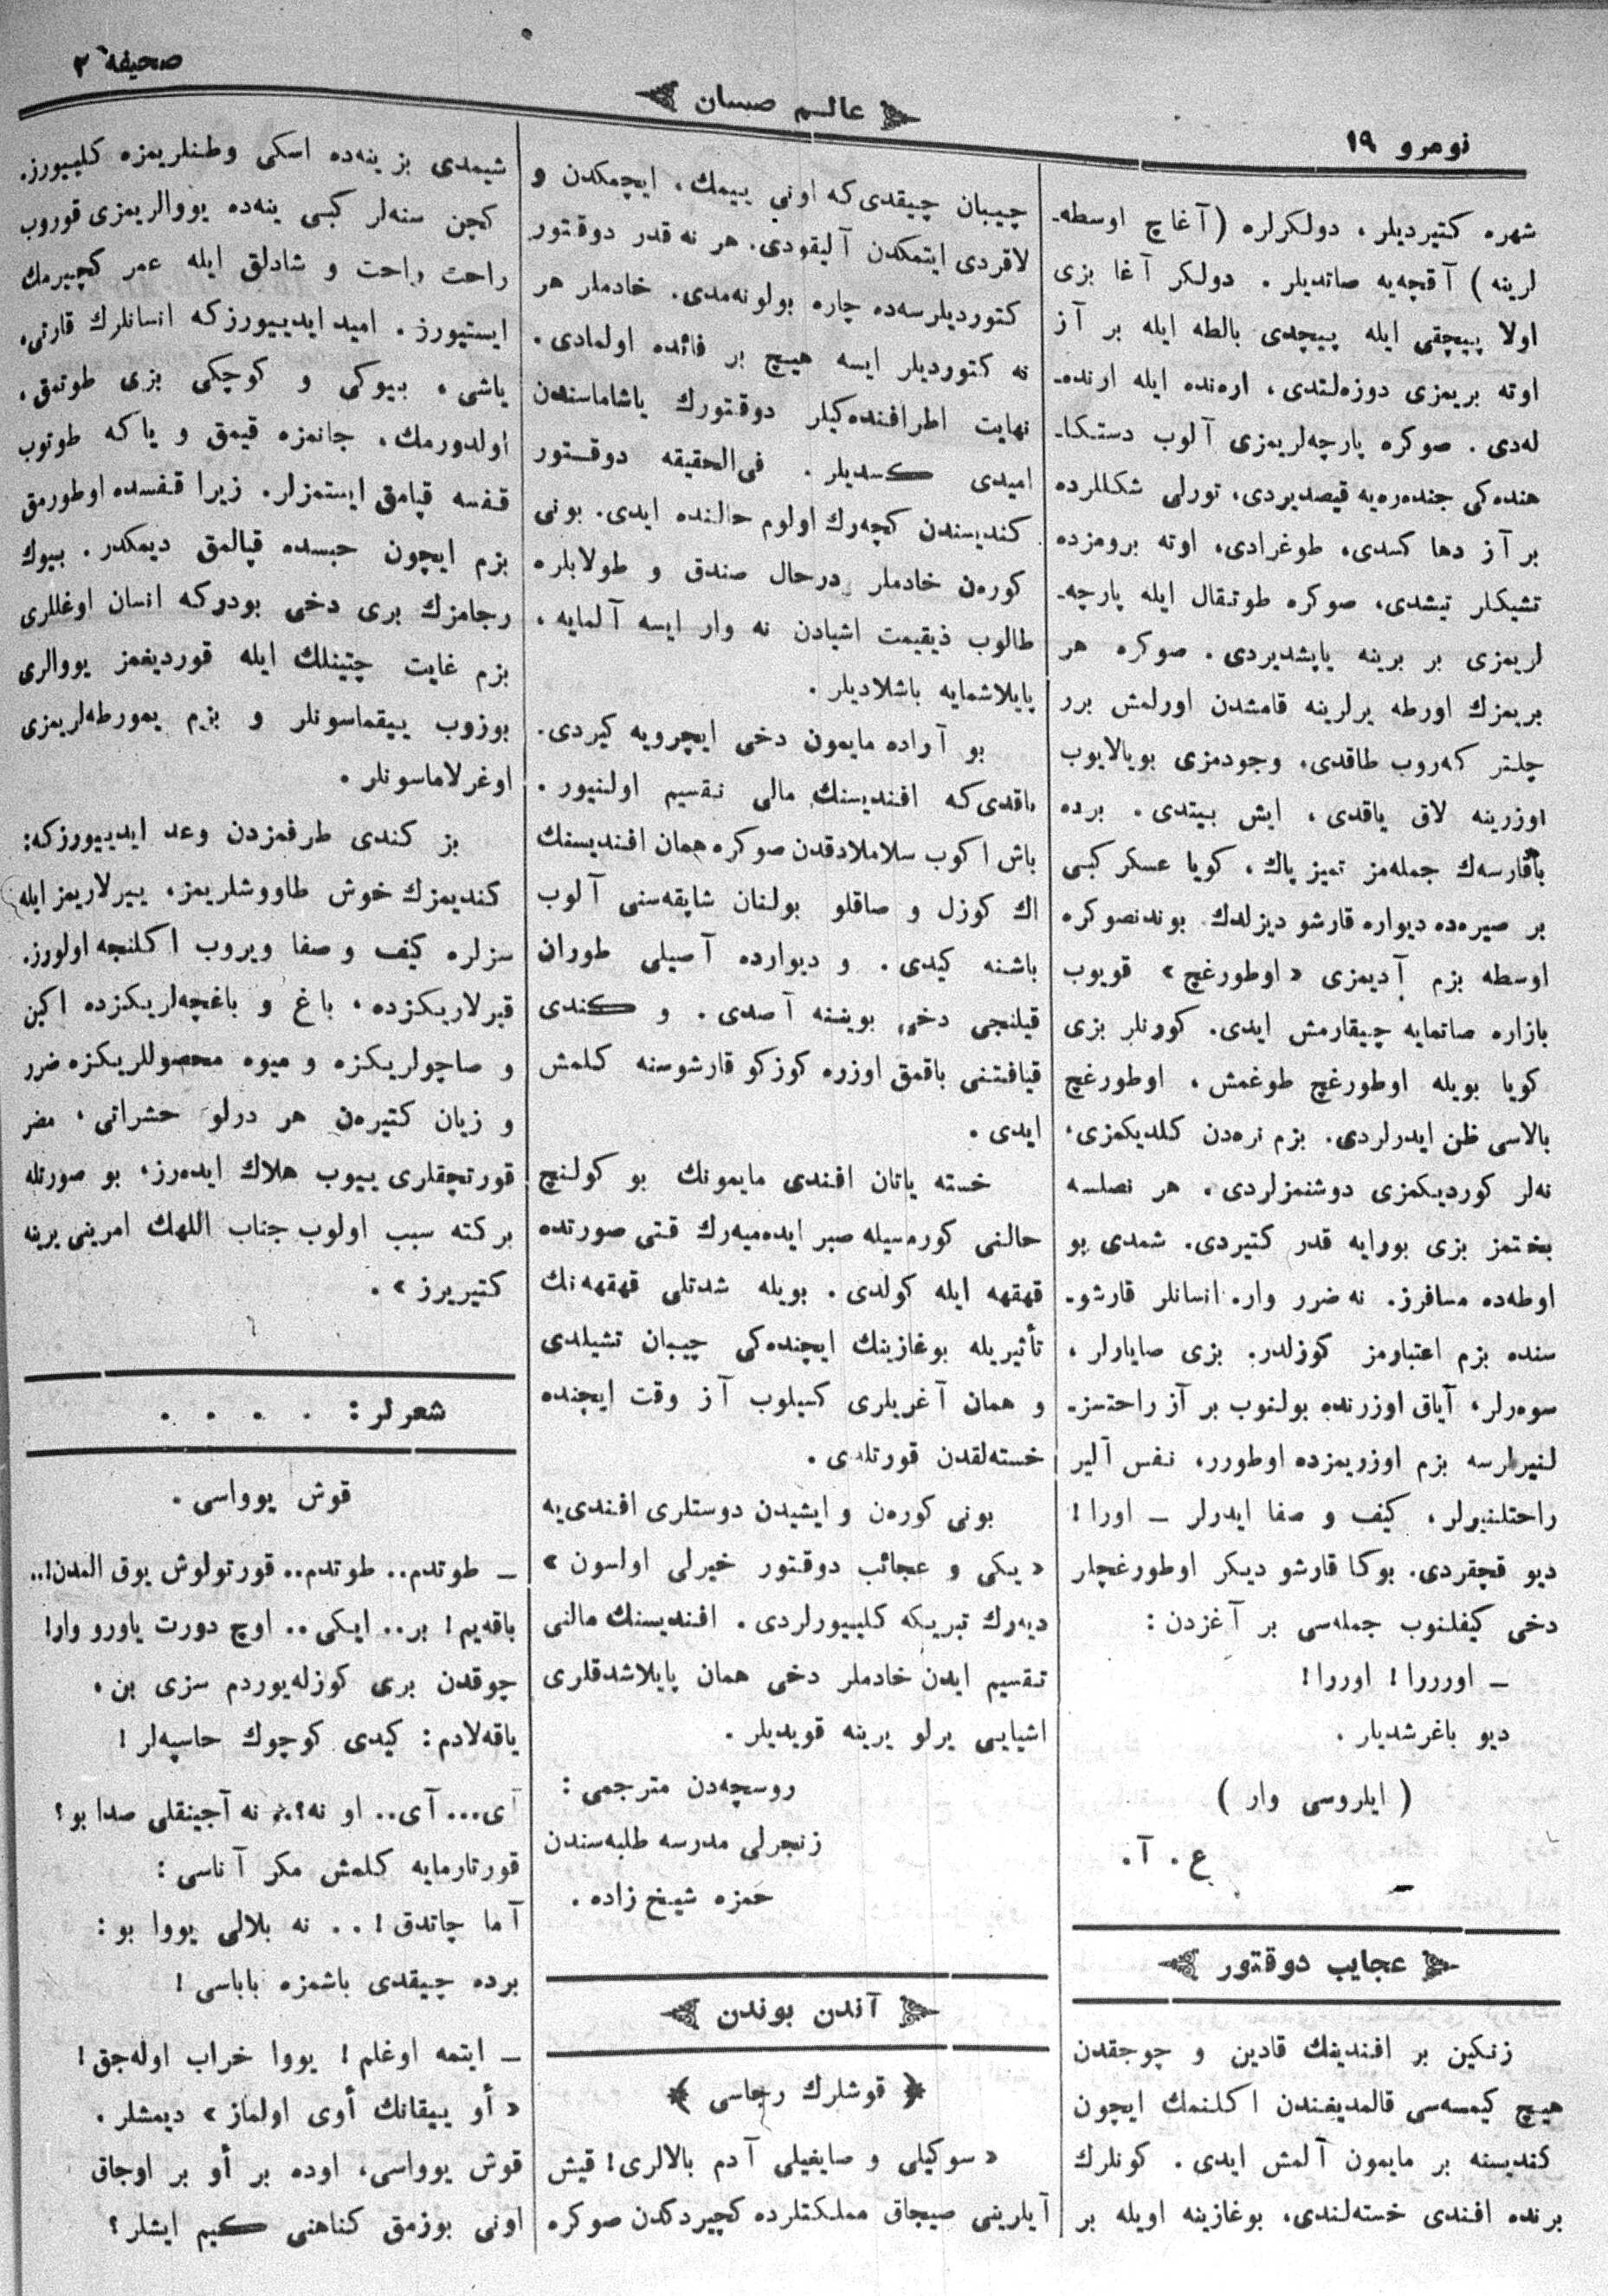 صحیفهٔ ٣
عالـم صبیان
نومرو ١٩
شهره کتیردیلر، دولکرلره (آغاچ اوسطه‌ـ
لرینه) آقچه‌یه صاتدیلر. دولکر آغا بزی
اولا پیچقی ایله پیچدی بالطه ایله بر آز
اوته بریمزی دوزه‌لتدی، اره‌نده ایله ارنده‌ـ
له‌دی. صوکره پارچه‌لریمزی آلوب دستکاـ
هنده‌کی جنده‌ره‌یه قیصدیردی، تورلی شکللرده
بر آز دها کسدی، طوغرادی، اوته برومزده
تشیکلر تیشدی، صوکره طوتقال ایله پارچه‌ـ
لریمزی بر برینه یاپشدیردی. صوکره هر
بریمزك اورطه یرلرینه قامشدن اورلمش برر
چلتر که‌روب طاقدی. وجودمزی بویالایوب
اوزرینه لاق یاقدی، ایش بیتدی. برده
باقارسه‌ك جمله‌مز تمیز پاك، کویا عسکر کبی
بر صیره‌ده دیواره قارشو دیزلدك. بوندنصوکره
اوسطه بزم آدیمزی «اوطورغچ» قویوب
بازاره صاتمایه چیقارمش ایدی. کورنلر بزی
کویا بویله اوطورغچ طوغمش، اوطورغچ
بالاسی ظن ایدرلردی. بزم نره‌دن کلدیکمزی،
نه‌لر کوردیکمزی دوشنمزلردی. هر نصلسه
بختمز بزی بورایه قدر کتیردی. شمدی بو
اوطه‌ده مسافرز. نه ضرر وار. انسانلر قارشوـ
سنده بزم اعتبارمز کوزلدر. بزی صایارلر،
سوه‌رلر، آیاق اوزرنده بولنوب بر آز راحتسزـ
لنیرلرسه بزم اوزریمزده اوطورر، نفس آلیر
راحتلنیرلر، کیف و صفا ایدرلر — اورا!
دیو قچقردی. بوکا قارشو دیکر اوطورغچلر
دخی کیفلنوب جمله‌سی بر آغزدن:
— اورررا! اوررا!
دیو باغرشدیلر.
(ایلروسی وار)
ع. آ.
عجایب دوقتور
زنکین بر افندینك قادین و چوجقدن
هیچ کیمسه‌سی قالمدیغندن اکلنمك ایچون
کندیسنه بر مایمون آلمش ایدی. کونلرك
برنده افندی خسته‌لندی، بوغازینه اویله بر
چیبان چیقدی‌که اونی ییمك، ایچمکدن و
لاقردی ایتمکدن آلیقودی. هر نه قدر دوقتور
کتوردیلرسه‌ده چاره بولونه‌مدی. خادملر هر
نه کتوردیلر ایسه هیچ بر فائده اولمادی.
نهایت اطرافنده‌کیلر دوقتورك یاشاماسندن
امیدی کسدیلر. فی‌الحقیقه دوقتور
کندیسندن کچه‌رك اولوم حالنده ایدی. بونی
کوره‌ن خادملر درحال صندق و طولابلره
طالوب ذیقیمت اشیادن نه وار ایسه آلمایه،
پایلاشمایه باشلادیلر.
بو آراده مایمون دخی ایچرویه کیردی.
باقدی‌که افندیسنك مالی تقسیم اولنیور.
باش اکوب سلاملادقدن صوکره همان افندیسنك
اك کوزل و صاقلو بولنان شاپقه‌سنی آلوب
باشنه کیدی. و دیوارده آصیلی طوران
قیلنجی دخی بویننه آصدی. و کندی
قیافتنی باقمق اوزره کوزکو قارشوسنه کلمش
ایدی.
خسته یاتان افندی مایمونك بو کولنچ
حالنی کورمسیله صبر ایده‌میه‌رك قتی صورتده
قهقهه ایله کولدی. بویله شدتلی قهقهه‌نك
تأثیریله بوغازینك ایچنده‌کی چیبان تشیلدی
و همان آغریلری کسیلوب آز وقت ایچنده
خسته‌لقدن قورتلدی.
بونی کوره‌ن و ایشیدن دوستلری افندی‌یه
«یکی و عجائب دوقتور خیرلی اولسون»
دیه‌رك تبریکه کلییورلردی. افندیسنك مالنی
تقسیم ایدن خادملر دخی همان پایلاشدقلری
اشیایی یرلو یرینه قویدیلر.
روسچه‌دن مترجمی:
زنجرلی مدرسه طلبه‌سندن
حمزه شیخ زاده.
آندن بوندن
قوشلرك رجاسی
«سوکیلی و صایغیلی آدم بالالری! قیش
آیلرینی صیجاق مملکتلرده کچیردکدن صوکره
شیمدی بز ینه‌ده اسکی وطنلریمزه کلیورز.
کچن سنه‌لر کبی ینه‌ده یووالریمزی قوروب
راحت راحت و شادلق ایله عمر کچیرمك
ایستیورز. امید ایدییورزکه انسانلرك قارتی،
یاشی، بیوکی و کوچکی بزی طوتمق،
اولدورمك، جانمزه قیمق و یاکه طوتوب
قفسه قپامق ایستمزلر. زیرا قفسده اوطورمق
بزم ایچون حبسده قپالمق دیمکدر. بیوك
رجامزك بری دخی بودرکه انسان اوغللری
بزم غایت چتینلك ایله قوردیغمز یووالری
بوزوب ییقماسونلر و بزم یمورطه‌لریمزی
اوغرلاماسونلر.
بز کندی طرفمزدن وعد ایدییورزکه:
کندیمزك خوش طاووشلریمز، ییرلاریمز ایله
سزلره کیف و صفا ویروب اکلنجه اولورز.
قیرلاریکزده، باغ و باغچه‌لریکزده اکین
و صاچولریکزه و میوه محصوللریکزه ضرر
و زیان کتیره‌ن هر درلو حشراتی، مضر
قورتچقلری ییوب هلاك ایده‌رز، بو صورتله
برکته سبب اولوب جناب اللهك امرینی یرینه
کتیریرز».
شعرلر: . . . .
قوش یوواسی.
— طوتدم.. طوتدم.. قورتولوش یوق المدن!..
باقه‌یم! بر.. ایکی.. اوچ دورت یاورو وار!
چوقدن بری کوزله‌یوردم سزی بن،
یاقه‌لادم: کیدی کوچوك حاسپه‌لر!
آی... آی.. او نه؟.. نه آجینقلی صدا بو؟
قورتارمایه کلمش مکر آناسی:
آما چاتدق!.. نه بلالی یووا بو:
برده چیقدی باشمزه باباسی!
— ایتمه اوغلم! یووا خراب اوله‌جق!
«أو ییقانك أوی اولماز» دیمشلر.
قوش یوواسی، اوده بر أو بر اوجاق
اونی بوزمق کناهنی کیم ایشلر؟